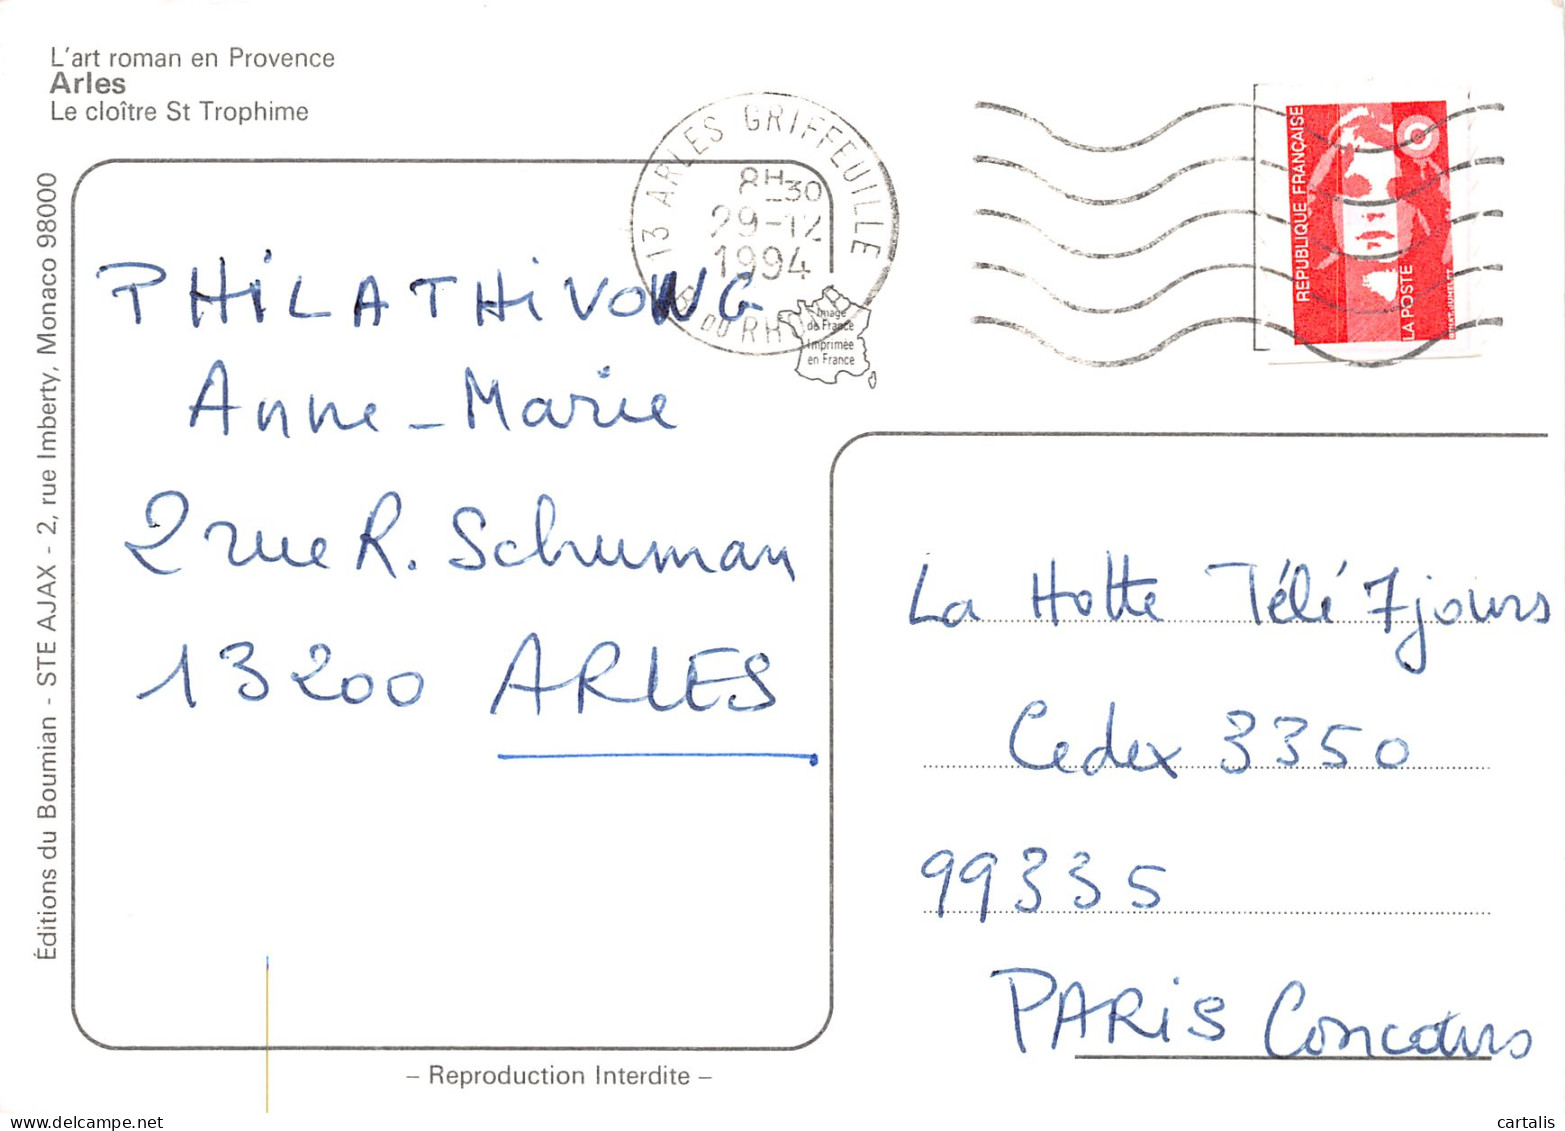 L'art roman en Provence
Arles
Le cloître St Trophime
Éditions du Boumian - STE AJAX - 2, rue Imberty, Monaco 98000
13 ARLES GRIFFEUILLE
8H30
29-12
1994
B. DU RHONE
Image
de France
Imprimée
en France
REPUBLIQUE FRANÇAISE
LA POSTE
PHILATHIVONG
Anne-Marie
2 rue R. Schuman
13200 ARLES
La Hotte Télé 7 jours
Cedex 3350
99335
PARIS Concours
– Reproduction Interdite –
delcampe.net
cartalis